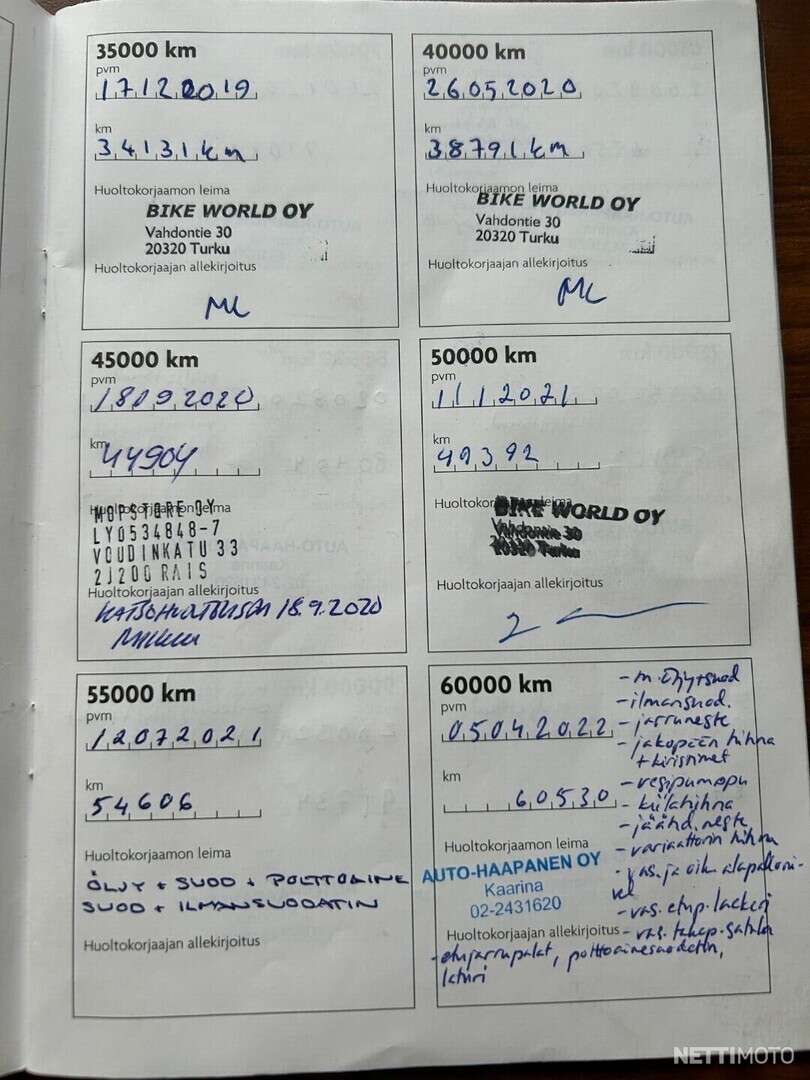 35000 km
pvm
17122019
km
34131 km
Huoltokorjaamon leima
BIKE WORLD OY
Vahdontie 30
20320 Turku
Huoltokorjaajan allekirjoitus
40000 km
pvm
26052020
km
38791 km
Huoltokorjaamon leima
BIKE WORLD OY
Vahdontie 30
20320 Turku
Huoltokorjaajan allekirjoitus
45000 km
pvm
18092020
km
44904
Huoltokorjaamon leima
MOPSTORE OY
LY0534848-7
VOUDINKATU 33
21200 RAIS
Huoltokorjaajan allekirjoitus
18.9.2020
50000 km
pvm
1112021
km
49392
Huoltokorjaamon leima
BIKE WORLD OY
Vahdontie 30
20320 Turku
Huoltokorjaajan allekirjoitus
55000 km
pvm
12072021
km
54606
Huoltokorjaamon leima
ÖLJY + SUOD + POLTTOAINE
SUOD + ILMANSUODATIN
Huoltokorjaajan allekirjoitus
60000 km
pvm
05042022
km
60530
Huoltokorjaamon leima
AUTO-HAAPANEN OY
Kaarina
02-2431620
Huoltokorjaajan allekirjoitus
- m.öljy+suod
- ilmansuod.
- jarruneste
- jakopään hihna
+ kiristimet
- vesipumppu
- kiilahihna
- jäähd.neste
- variaattorin hihna
- vas. ja oik. alapalloni-
vel
- vas. etup.
- vas. takap. satula
- etujarrupalat, polttoainesuodatin,
laturi
NETTIMOTO